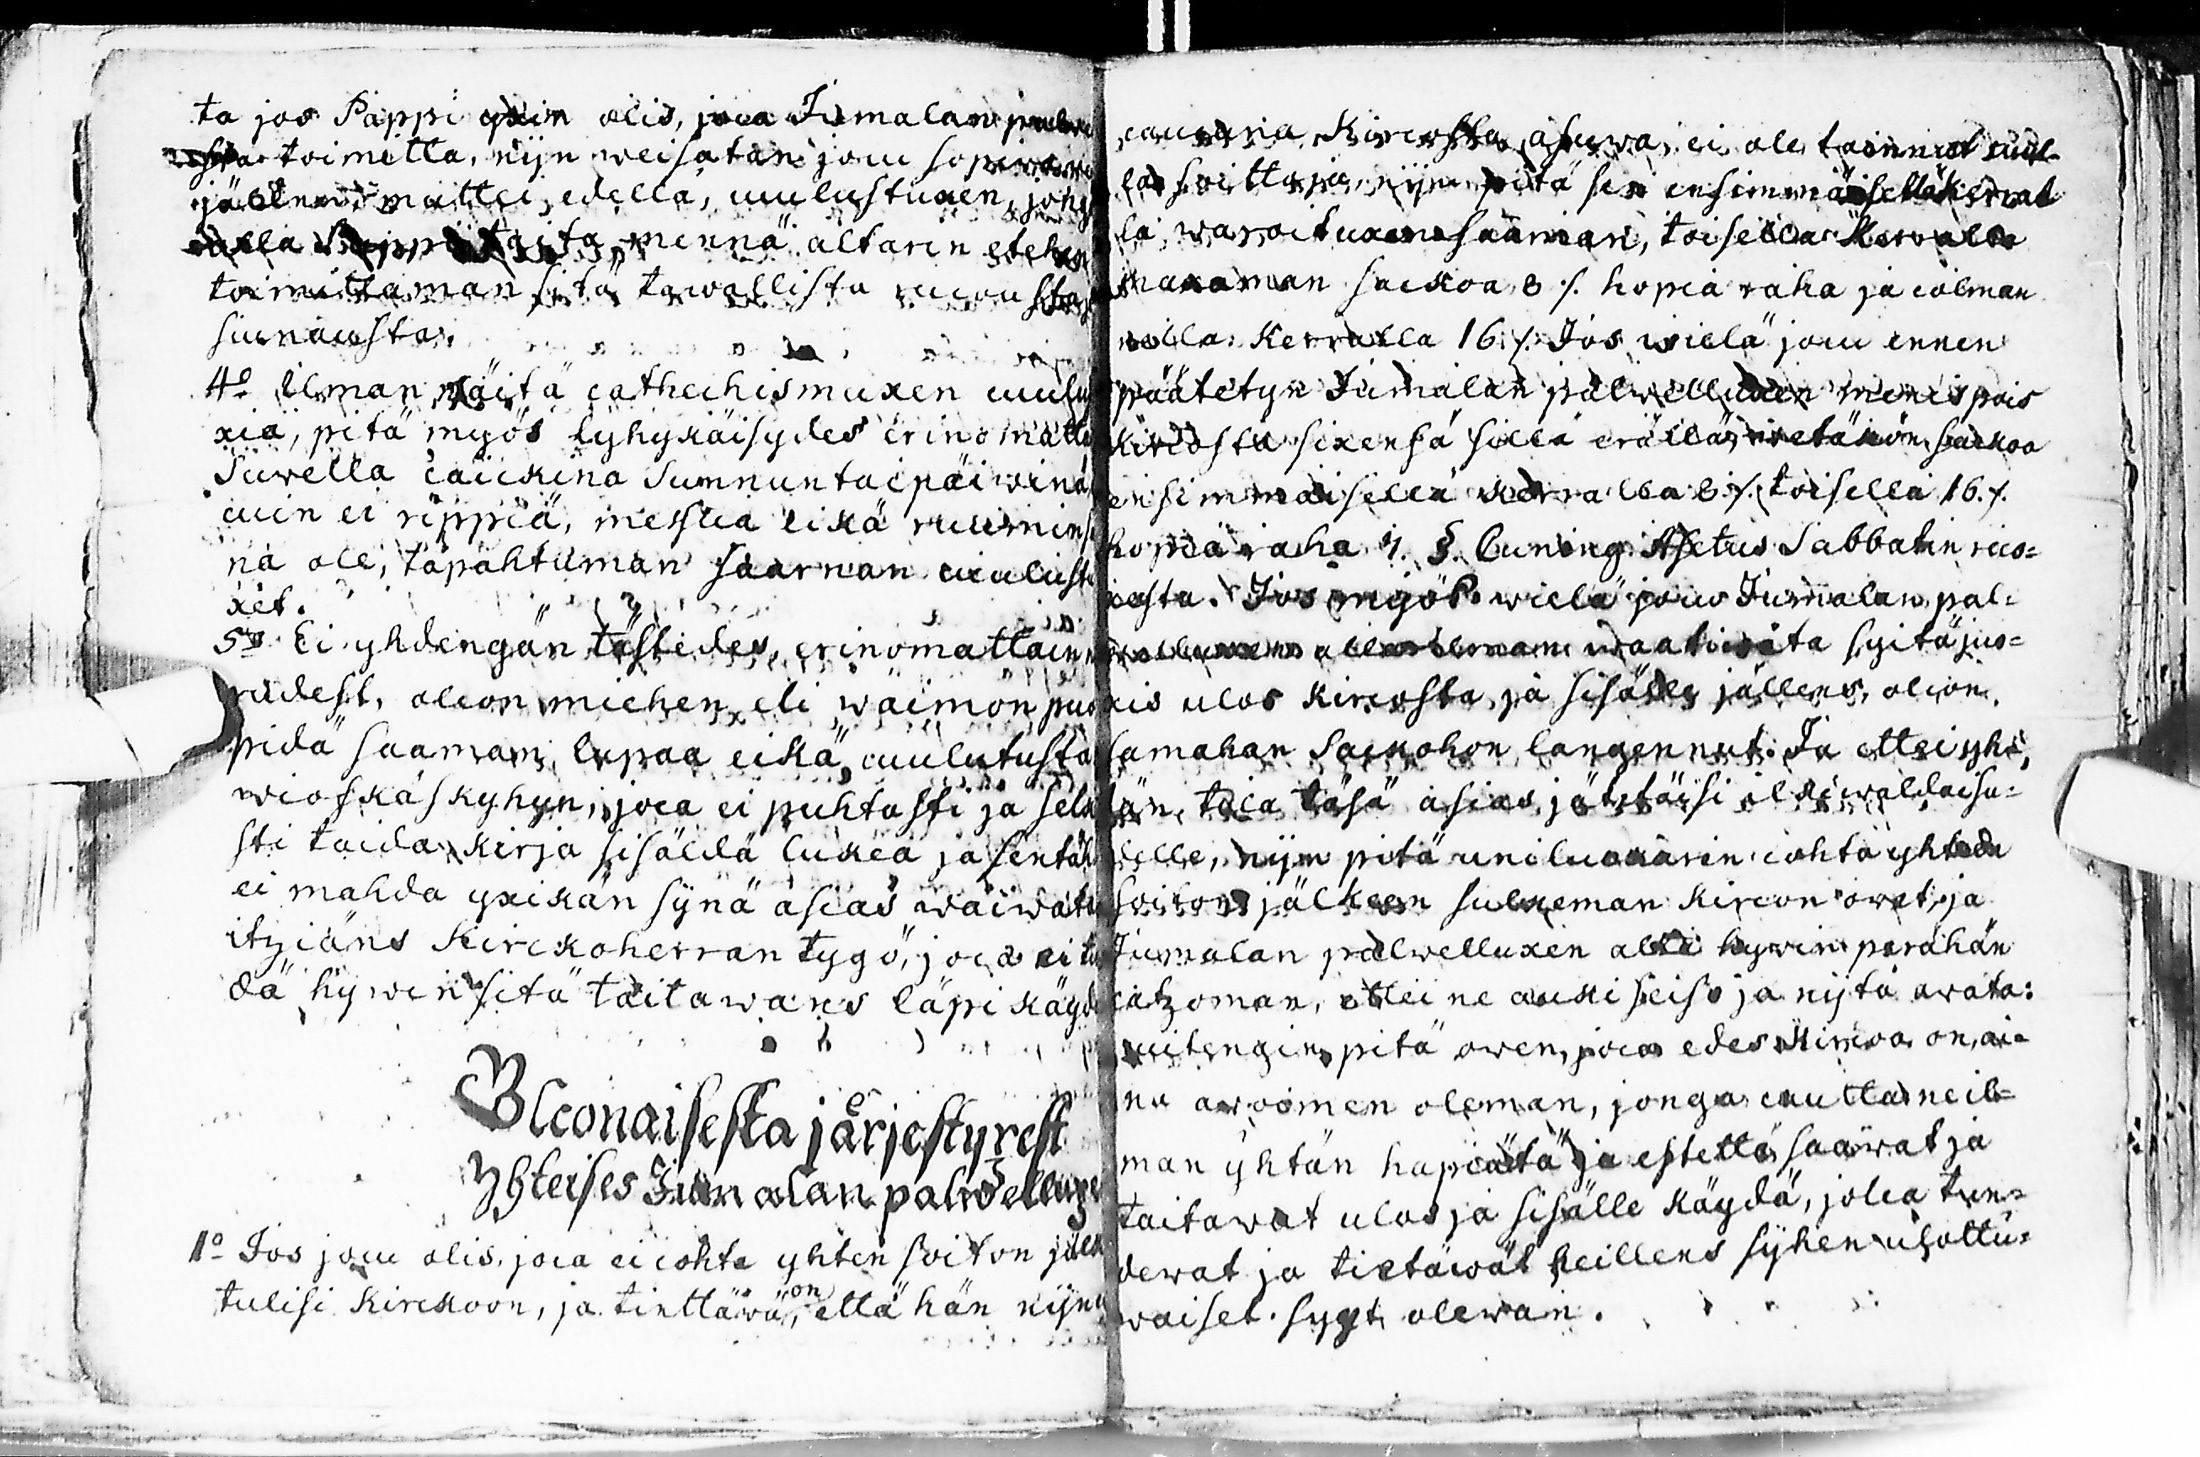 ta jos Pappi yxin olis, joca Jumalan
toimitta, nijn weisatan jocu sopiwa
edellä, cuulustuxen,
Pappi taita mennä altarin etehen
toimittaman sitä tawallista rucousta
siunausta.
4:o Ilman näitä cathechismuxen cuulus
xia, pitä myös lyhykäisydes erinomatt
Suwella caickina Sunnuntaipäiwinä
cuin ei rippiä, messua eikä ruumins
na ole, tapahtuman saarnan cuulustu
xet.
5:o Ei yhdengän tästedes, erinomattain
rudest, olcon miehen eli waimon puo
pidä saaman lupaa eikä cuulutusta
wioskäskyhyn, joca ei puhtasti ja selk
sti taida kirja sisäldä lukea ja sentäh
ei mahda yxikän sijnä asias waiwata
itziäns Kirckoherran tygö, joca ei ta
dä hywin sitä taitawans läpi käyd
Ulconaisesta järjestyxest
Yhteises Jumalan palwelluxe
1:o Jos jocu olis, joca ei cohta yhten soiton jälk
tulisi Kirckoon, ja tiettäwä on, että hän nijn
caucana Kircosta asuwa, ei ole tainnut cuul-
la soittoja, nijn pitä sen ensimmäisellä kerral
la, waroituxen saaman, toisella Kerralla
maxaman sackoa 8 /. hopia raha ja colman
nella Kerralla 16 /. Jos wielä jocu ennen
päätetyn Jumalan palwelluxen menis pois
kircosta sixensä sillä erällä, wetäkön sackoa
ensimmäisellä kerralla 8 /. toisella 16 /.
hopia raha 7. §. Cuning. Asetus Sabbatin rico=
xesta. Jos myös wielä jocu Jumalan pal=
ilman waatiwata syitä juo=
xis ulos kircosta, ja sisälle jällens, olcon
samahan Sackohon langennut. Ja ettei yhc=
kän, taca täsä asias jättäisi ilkiwaldaisu=
delle, nijn pitä unilucarin cohta yhteen
soiton jälkeen sulkeman kircon owet, ja
Jumalan palwelluxen alla hywin perähän
catzoman, ettei ne auki seiso ja nijtä awata:
cuitengin pitä owen, joca edes kircoa on, ai=
na awoimen oleman, jonga cautta ne il=
man yhtän hapiätä ja estettä saawat ja
taitawat ulos ja sisälle käydä, jolca tun=
dewat ja tietäwät heillens sijhen ulottu=
waiset syyt olewan.